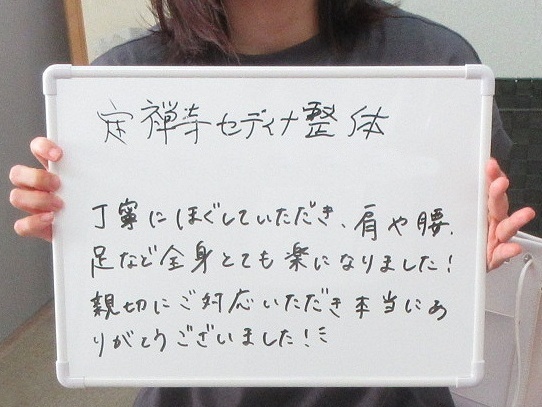 定禅寺セディナ整体
丁寧にほぐしていただき、肩や腰、
足など全身とても楽になりました!
親切にご対応いただき本当にあ
りがとうございました!ミ